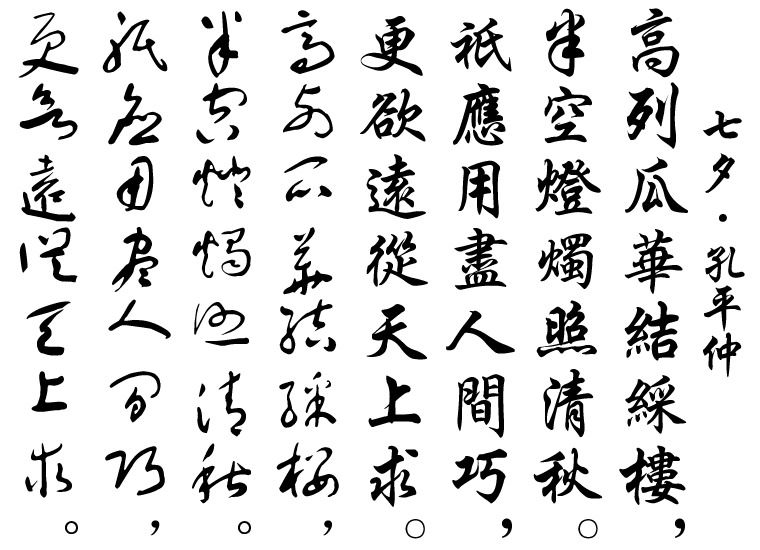 七夕·孔平仲
高列瓜華結綵樓，
半空燈燭照清秋。
祇應用盡人間巧，
更欲遠從天上求。
高列瓜華結綵樓，
半空燈燭照清秋。
祇應用盡人間巧，
更欲遠從天上求。